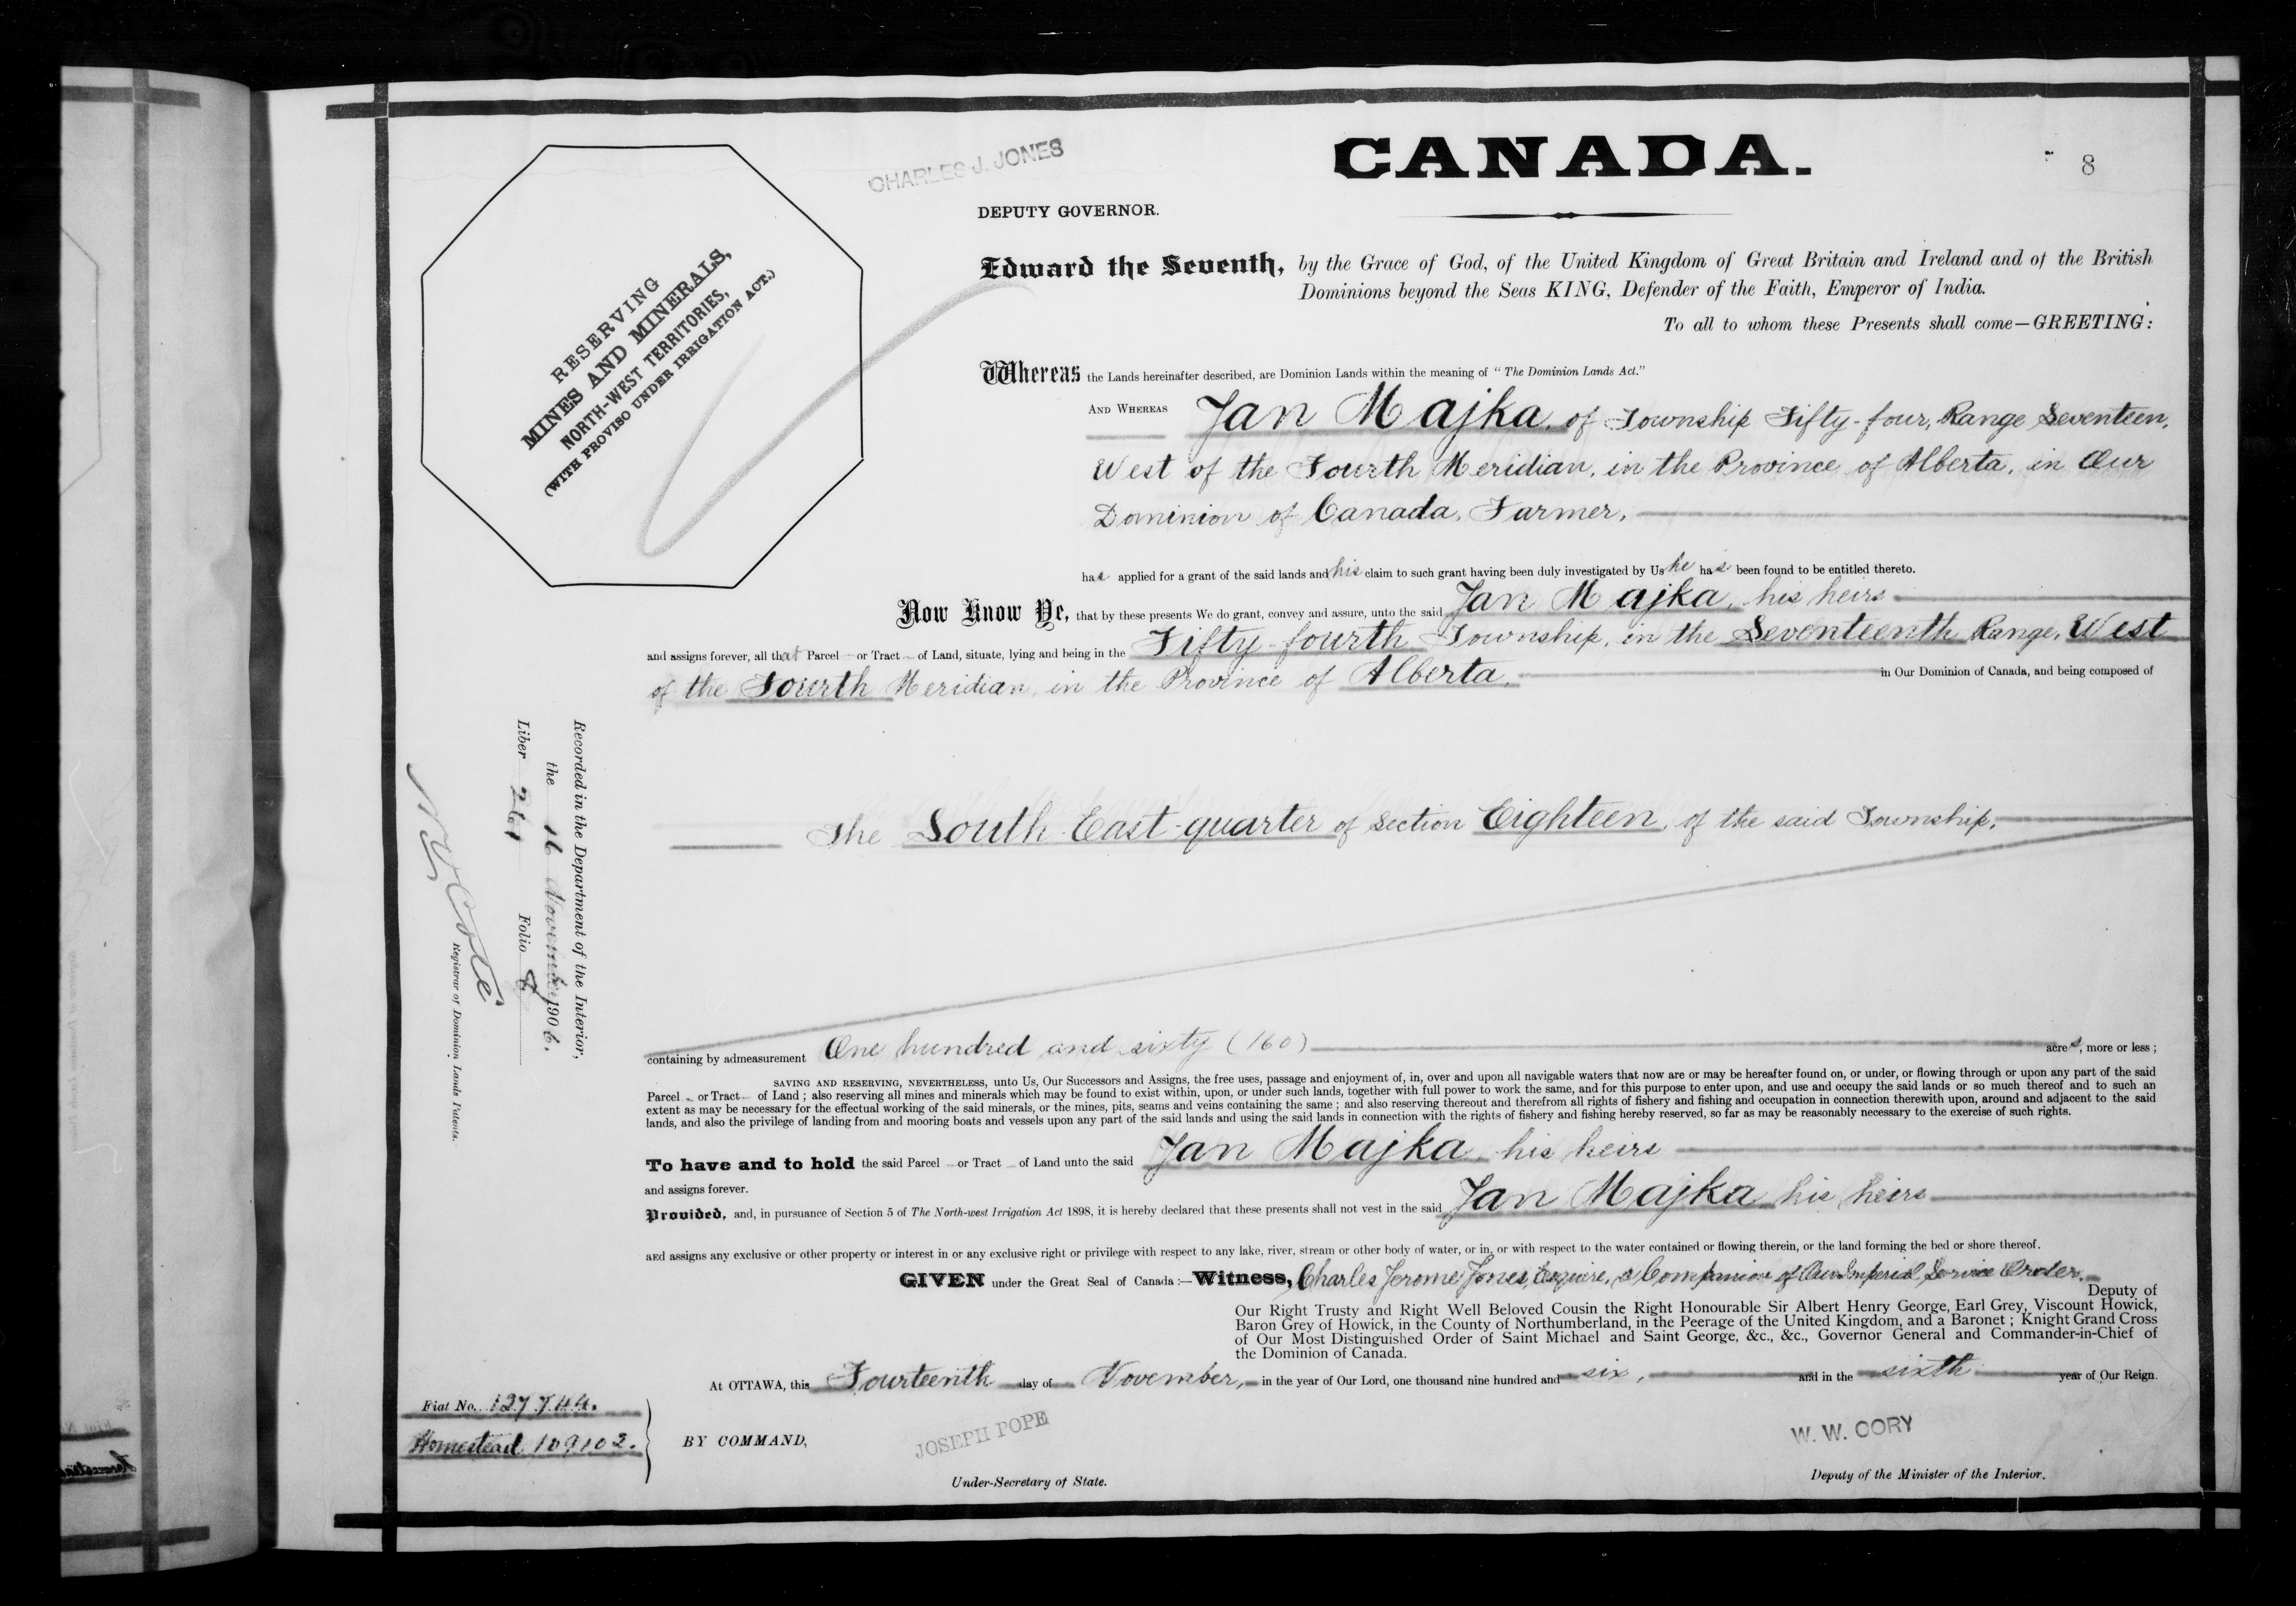 CHARLES J. JONES
CANADA.
8
DEPUTY GOVERNOR.
RESERVING
MINES AND MINERALS,
NORTH-WEST TERRITORIES,
(WITH PROVISO UNDER IRRIGATION ACT.)
Edward the Seventh, by the Grace of God, of the United Kingdom of Great Britain and Ireland and of the British
Dominions beyond the Seas KING, Defender of the Faith, Emperor of India.
To all to whom these Presents shall come—GREETING:
Whereas the Lands hereinafter described, are Dominion Lands within the meaning of "The Dominion Lands Act."
AND WHEREAS Jan Majka, of Township Fifty-four, Range Seventeen,
West of the Fourth Meridian, in the Province of Alberta, in Our
Dominion of Canada, Farmer,
has applied for a grant of the said lands and his claim to such grant having been duly investigated by Us he has been found to be entitled thereto.
Now Know Ye, that by these presents We do grant, convey and assure, unto the said Jan Majka, his heirs
and assigns forever, all that Parcel or Tract of Land, situate, lying and being in the Fifty-fourth Township, in the Seventeenth Range, West
of the Fourth Meridian, in the Province of Alberta, in Our Dominion of Canada, and being composed of
The South East quarter of Section Eighteen, of the said Township,
containing by admeasurement One hundred and sixty (160) acres, more or less;
SAVING AND RESERVING, NEVERTHELESS, unto Us, Our Successors and Assigns, the free uses, passage and enjoyment of, in, over and upon all navigable waters that now are or may be hereafter found on, or under, or flowing through or upon any part of the said
Parcel or Tract of Land; also reserving all mines and minerals which may be found to exist within, upon, or under such lands, together with full power to work the same, and for this purpose to enter upon, and use and occupy the said lands or so much thereof and to such an
extent as may be necessary for the effectual working of the said minerals, or the mines, pits, seams and veins containing the same; and also reserving thereout and therefrom all rights of fishery and fishing and occupation in connection therewith upon, around and adjacent to the said
lands, and also the privilege of landing from and mooring boats and vessels upon any part of the said lands and using the said lands in connection with the rights of fishery and fishing hereby reserved, so far as may be reasonably necessary to the exercise of such rights.
To have and to hold the said Parcel or Tract of Land unto the said Jan Majka, his heirs
and assigns forever.
Provided, and, in pursuance of Section 5 of The North-west Irrigation Act 1898, it is hereby declared that these presents shall not vest in the said Jan Majka, his heirs
and assigns any exclusive or other property or interest in or any exclusive right or privilege with respect to any lake, river, stream or other body of water, or in, or with respect to the water contained or flowing therein, or the land forming the bed or shore thereof.
GIVEN under the Great Seal of Canada:—Witness, Charles Jerome Jones, Esquire, a Companion of Our Imperial Service Order,
Deputy of
Our Right Trusty and Right Well Beloved Cousin the Right Honourable Sir Albert Henry George, Earl Grey, Viscount Howick,
Baron Grey of Howick, in the County of Northumberland, in the Peerage of the United Kingdom, and a Baronet; Knight Grand Cross
of Our Most Distinguished Order of Saint Michael and Saint George, &c., &c., Governor General and Commander-in-Chief of
the Dominion of Canada.
At OTTAWA, this Fourteenth day of November, in the year of Our Lord, one thousand nine hundred and six, and in the sixth year of Our Reign.
BY COMMAND,
JOSEPH POPE
Under-Secretary of State.
W. W. CORY
Deputy of the Minister of the Interior.
Fiat No. 127744.
Homestead 109102.
Recorded in the Department of the Interior,
the 16 November 1906.
Liber 261 Folio 8
Coté
Registrar of Dominion Lands Patents.